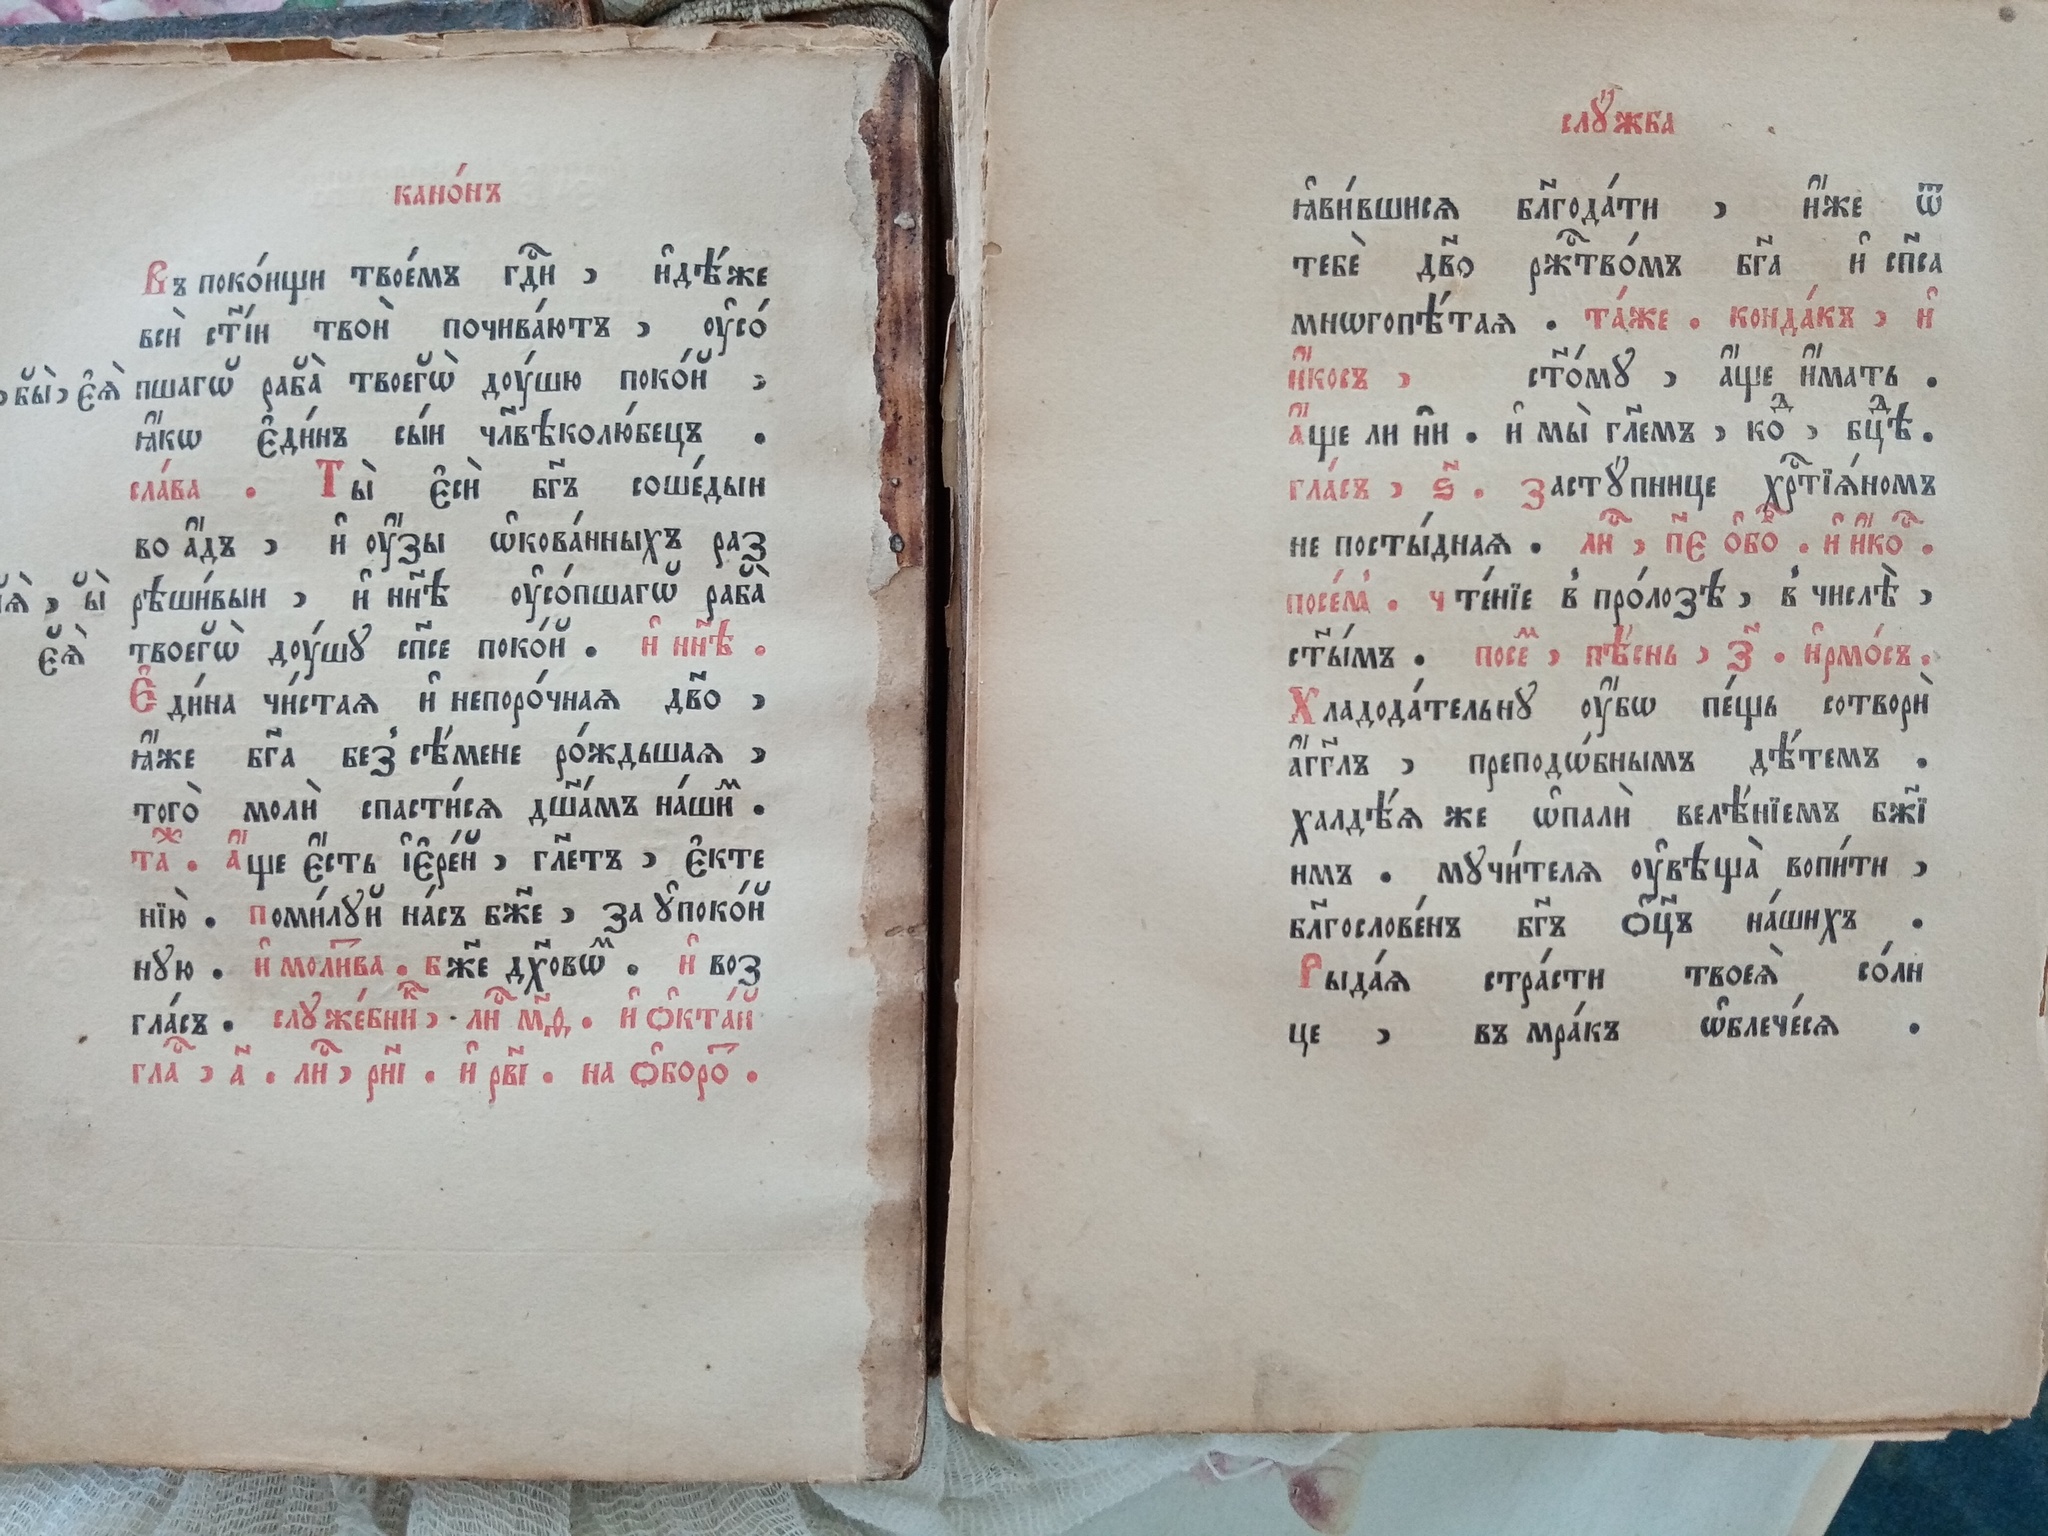 кано́нъ
Въ поко́ищи твое́мъ гдⷭ҇и , и҆дѣ́же
всѝ ст҃і́и твоѝ почива́ютъ , оу҆со́
бы̀ , є҆ѧ̀
пшагѡ̆ рабӑ̀ твоегѡ̆̀ доу́шю поко́й ,
ꙗ҆́кѡ є҆ди́нъ сы́и чл҃вѣколю́бецъ .
сла́ва . Ты̀ є҆сѝ бг҃ъ соше́дыи
во а҆́дъ , и҆ оу҆́зы ѡ҆кова́нныхъ раз
рѣши́выи , и҆ нн҃ѣ оу҆со́пшагѡ̆ рабӑ̀
ѧ̆̀ , ы̆̀
твоегѡ̆̀ доу́шꙋ сп҃се поко́й . и҆ нн҃ѣ .
є҆ѧ̆̀
Є҆ди́на чи́стаѧ и҆ непоро́чнаѧ дв҃о ,
ꙗ҆́же бг҃а без̾ сѣ́мене ро́ждьшаѧ ,
того̀ молѝ спасти́сѧ дш҃а́мъ на́шиⷨ .
таⷤ . А҆́ще є҆́сть і҆є҆ре́й , гл҃етъ , є҆кте
нїю̀ . поми́лꙋй на́съ бж҃е , за ᲂу҆поко́й
нꙋю . и҆ моли́тва . бж҃е дх҃овѡⷨ . и҆ воз
гла́съ . слꙋже́бниⷦ , лиⷭ҇ м҃д . и҆ ѻ҆кта́й
глаⷭ҇ , а҃ . лиⷭ҇ , рн҃і . и҆ рв҃і . на ѻ҆бороⷮ .
слꙋ́жба
ꙗ҆ви́вшисѧ бл҃года́ти , и҆́же ѿ
тебѐ дв҃о ржⷭ҇тво́мъ бг҃а и҆ сп҃са
мнѡгопѣ́таѧ . та́же . конда́къ , и҆
и҆́косъ , ст҃о́мꙋ , а҆́ще и҆́мать .
А҆́ще ли ни̑ . и҆ мы̀ гл҃емъ , коⷣ , бцⷣѣ .
гла́съ , ѕ҃ . Застꙋ́пнице хрⷭ҇тїѧ́номъ
не посты́днаѧ . лиⷭ҇ , п҃є ѻ҆боⷬ . и҆ и҆́коⷭ҇ .
посе́мъ . чте́нїе в̾ про́лозѣ , в̾ числѣ̀ ,
ст҃ы́мъ . посеⷨ , пѣ́снь , з҃ . и҆рмо́съ .
Хладода́тельнꙋ оу҆́бѡ пе́щь сотворѝ
а҆́гг҃лъ , преподѡ́бнымъ дѣ́темъ .
халдѣ́ѧ же ѡ҆палѝ велѣ́нїемъ бж҃і
имъ . мꙋчи́телѧ оу҆вѣща̀ вопи́ти ,
бл҃гослове́нъ бг҃ъ ѻ҆ц҃ъ на́шихъ .
Рыда́ѧ стра́сти твоеѧ̀ со́лн
це , въ мра́къ ѡ҆блече́сѧ .